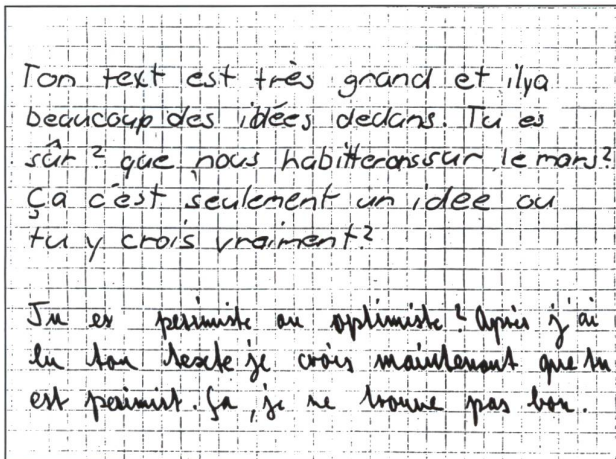 Ton text est très grand et ilya
beaucoup des idées dedans. Tu es
sûr? que nous habitterons sur le mars?
Ça c'est seulement un idee ou
tu y crois vraiment?
Tu es pesimiste ou optimiste? Après j'ai
lu ton texte je crois maintenant que tu
est pesimist. Ça, je ne trouve pas bon.